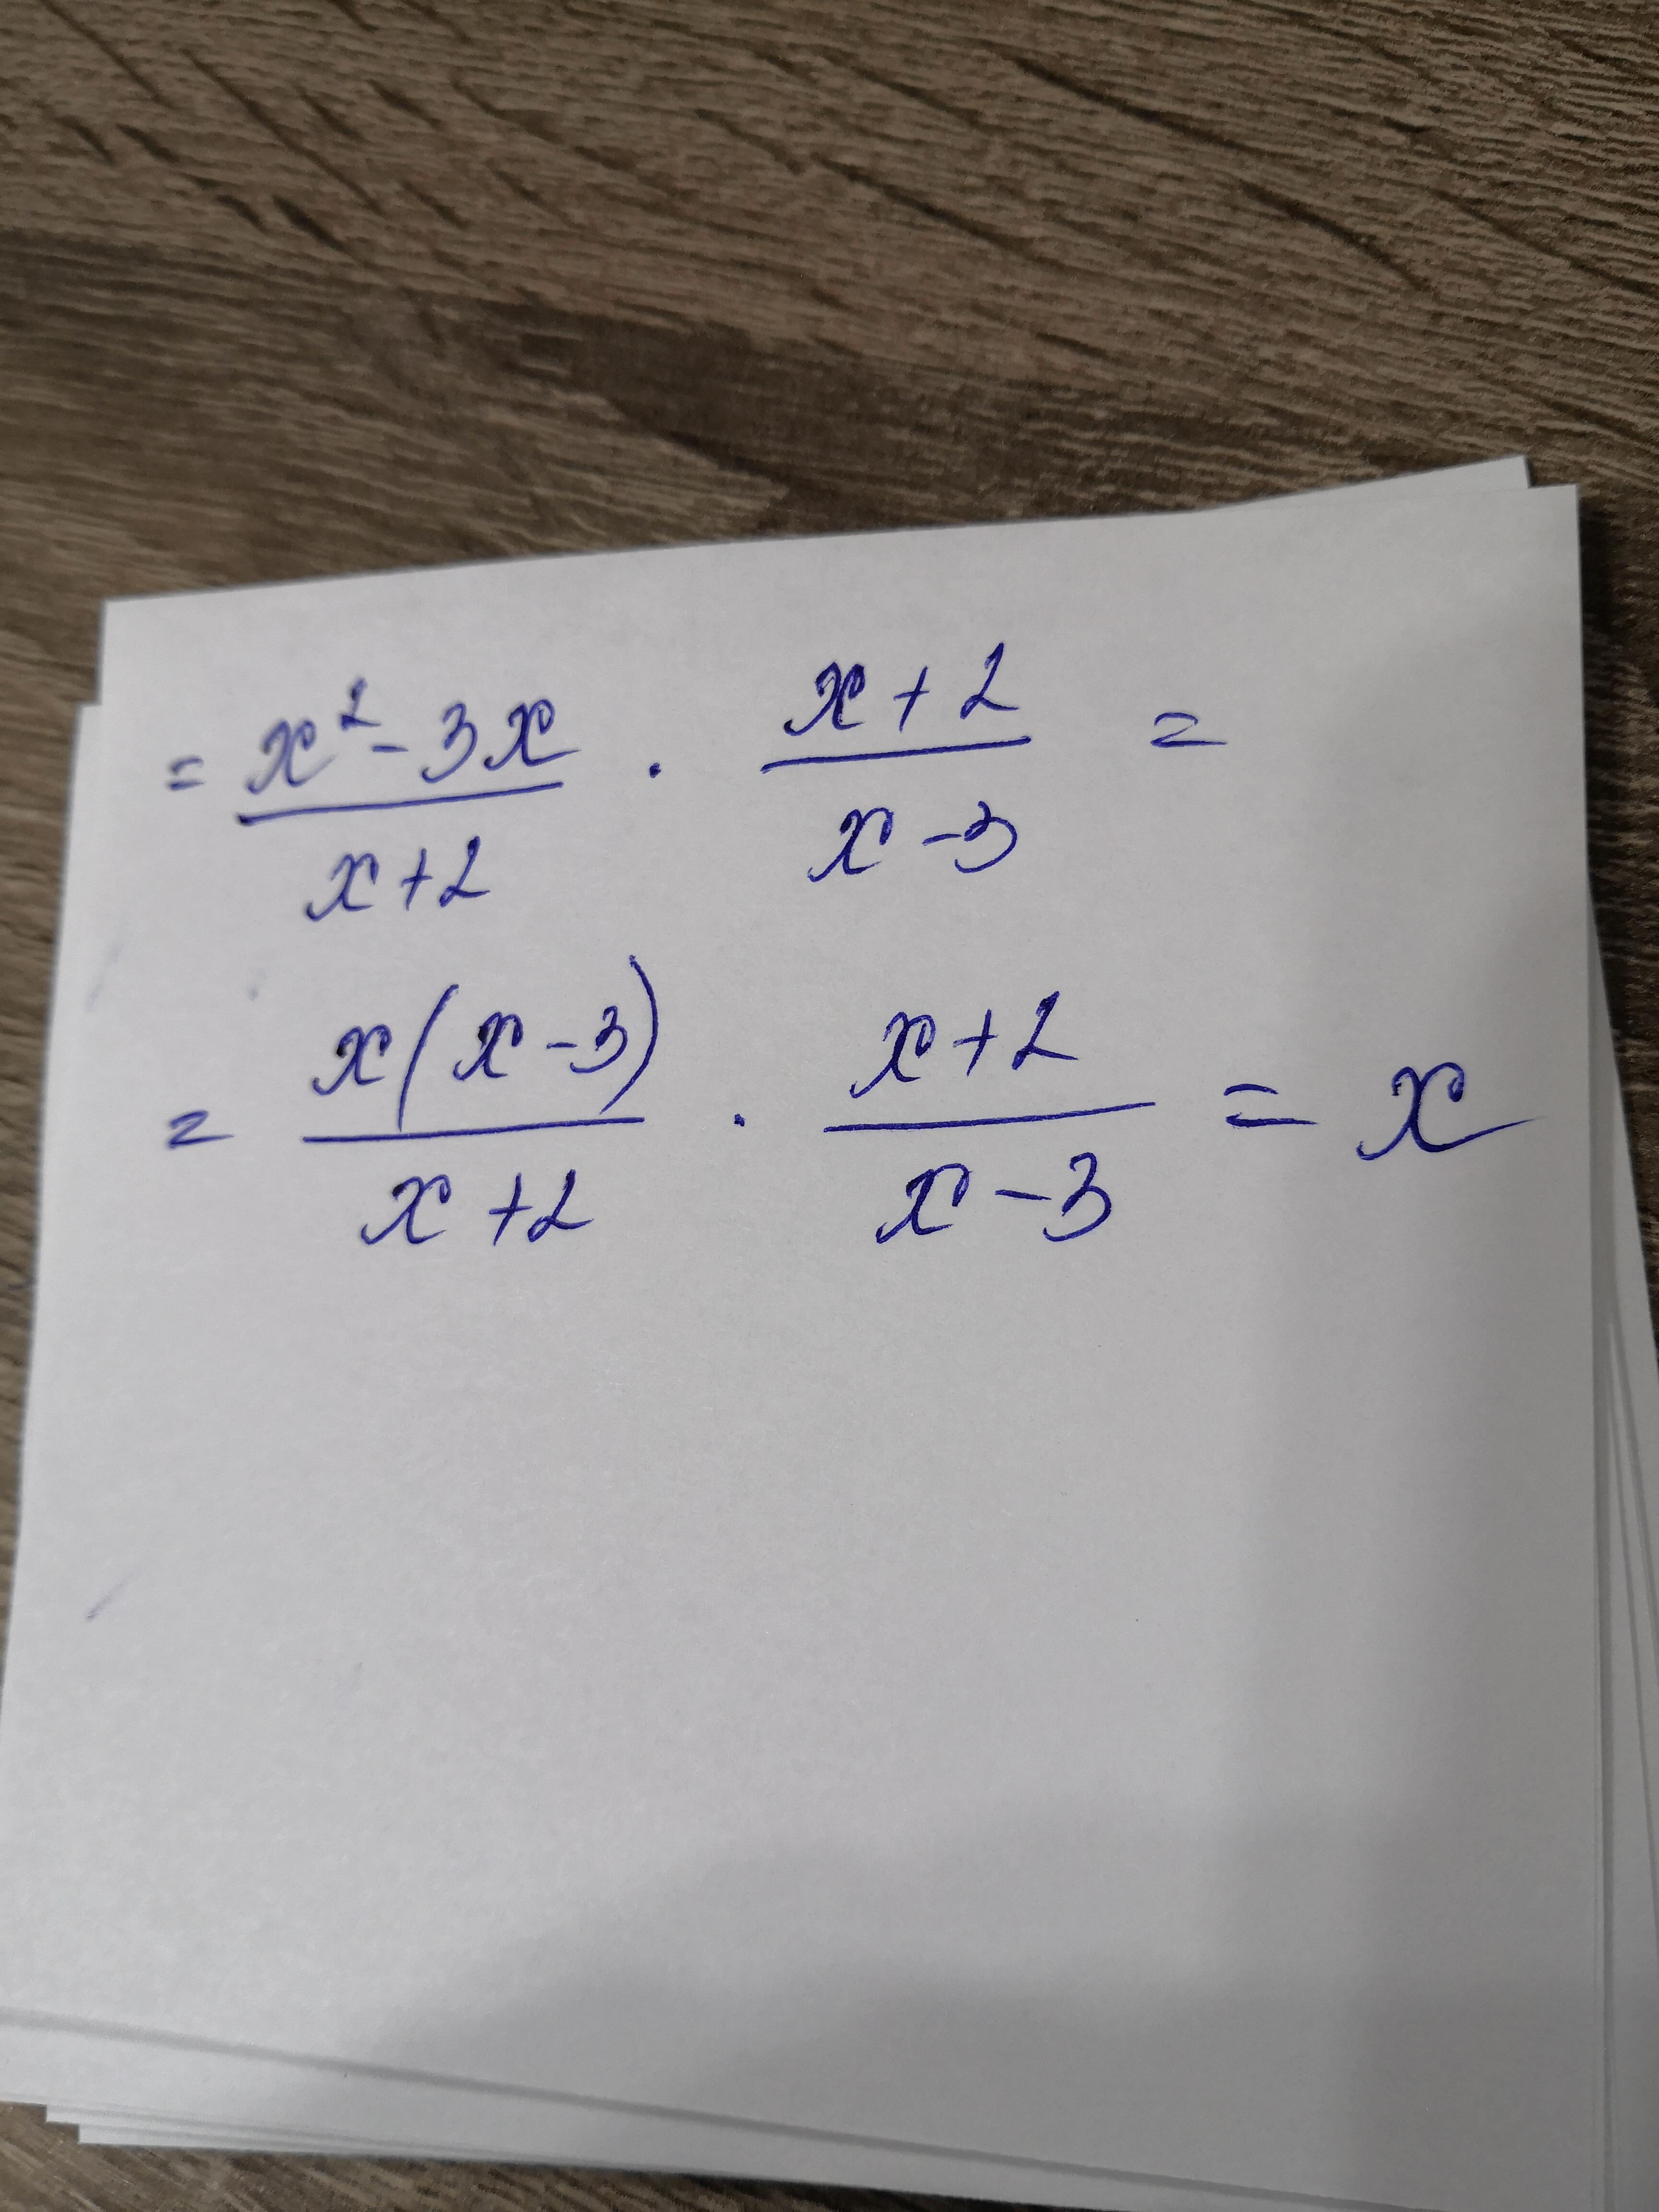 = (x² - 3x)/(x+2) · (x+2)/(x-3) =
= x(x-3)/(x+2) · (x+2)/(x-3) = x